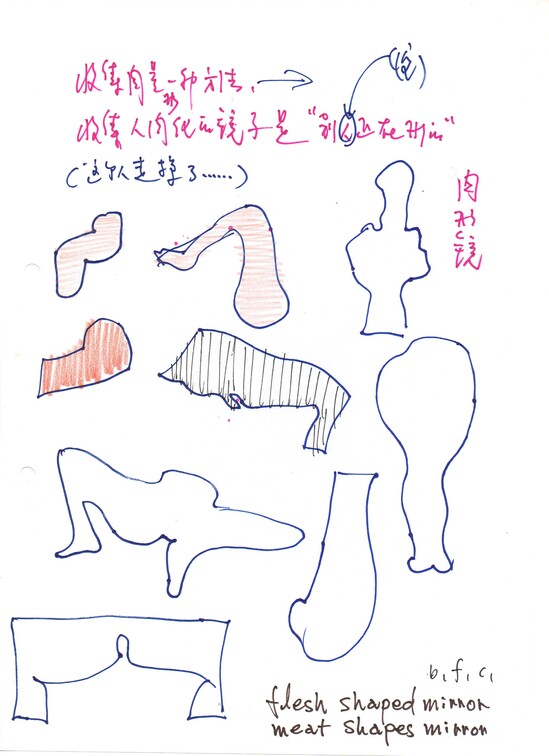 收集肉是一种方法,
形
收集人肉化的镜子是"别人正在形的"
(它)
(这个人走掉了......)
肉形镜
b, f, c,
flesh shaped mirror
meat shapes mirror